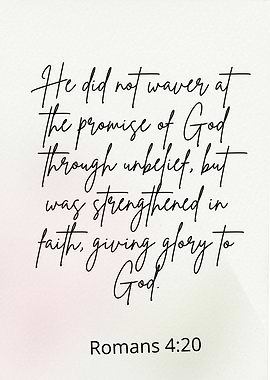 He did not waver at
the promise of God
through unbelief, but
was strengthened in
faith, giving glory to
God.
Romans 4:20